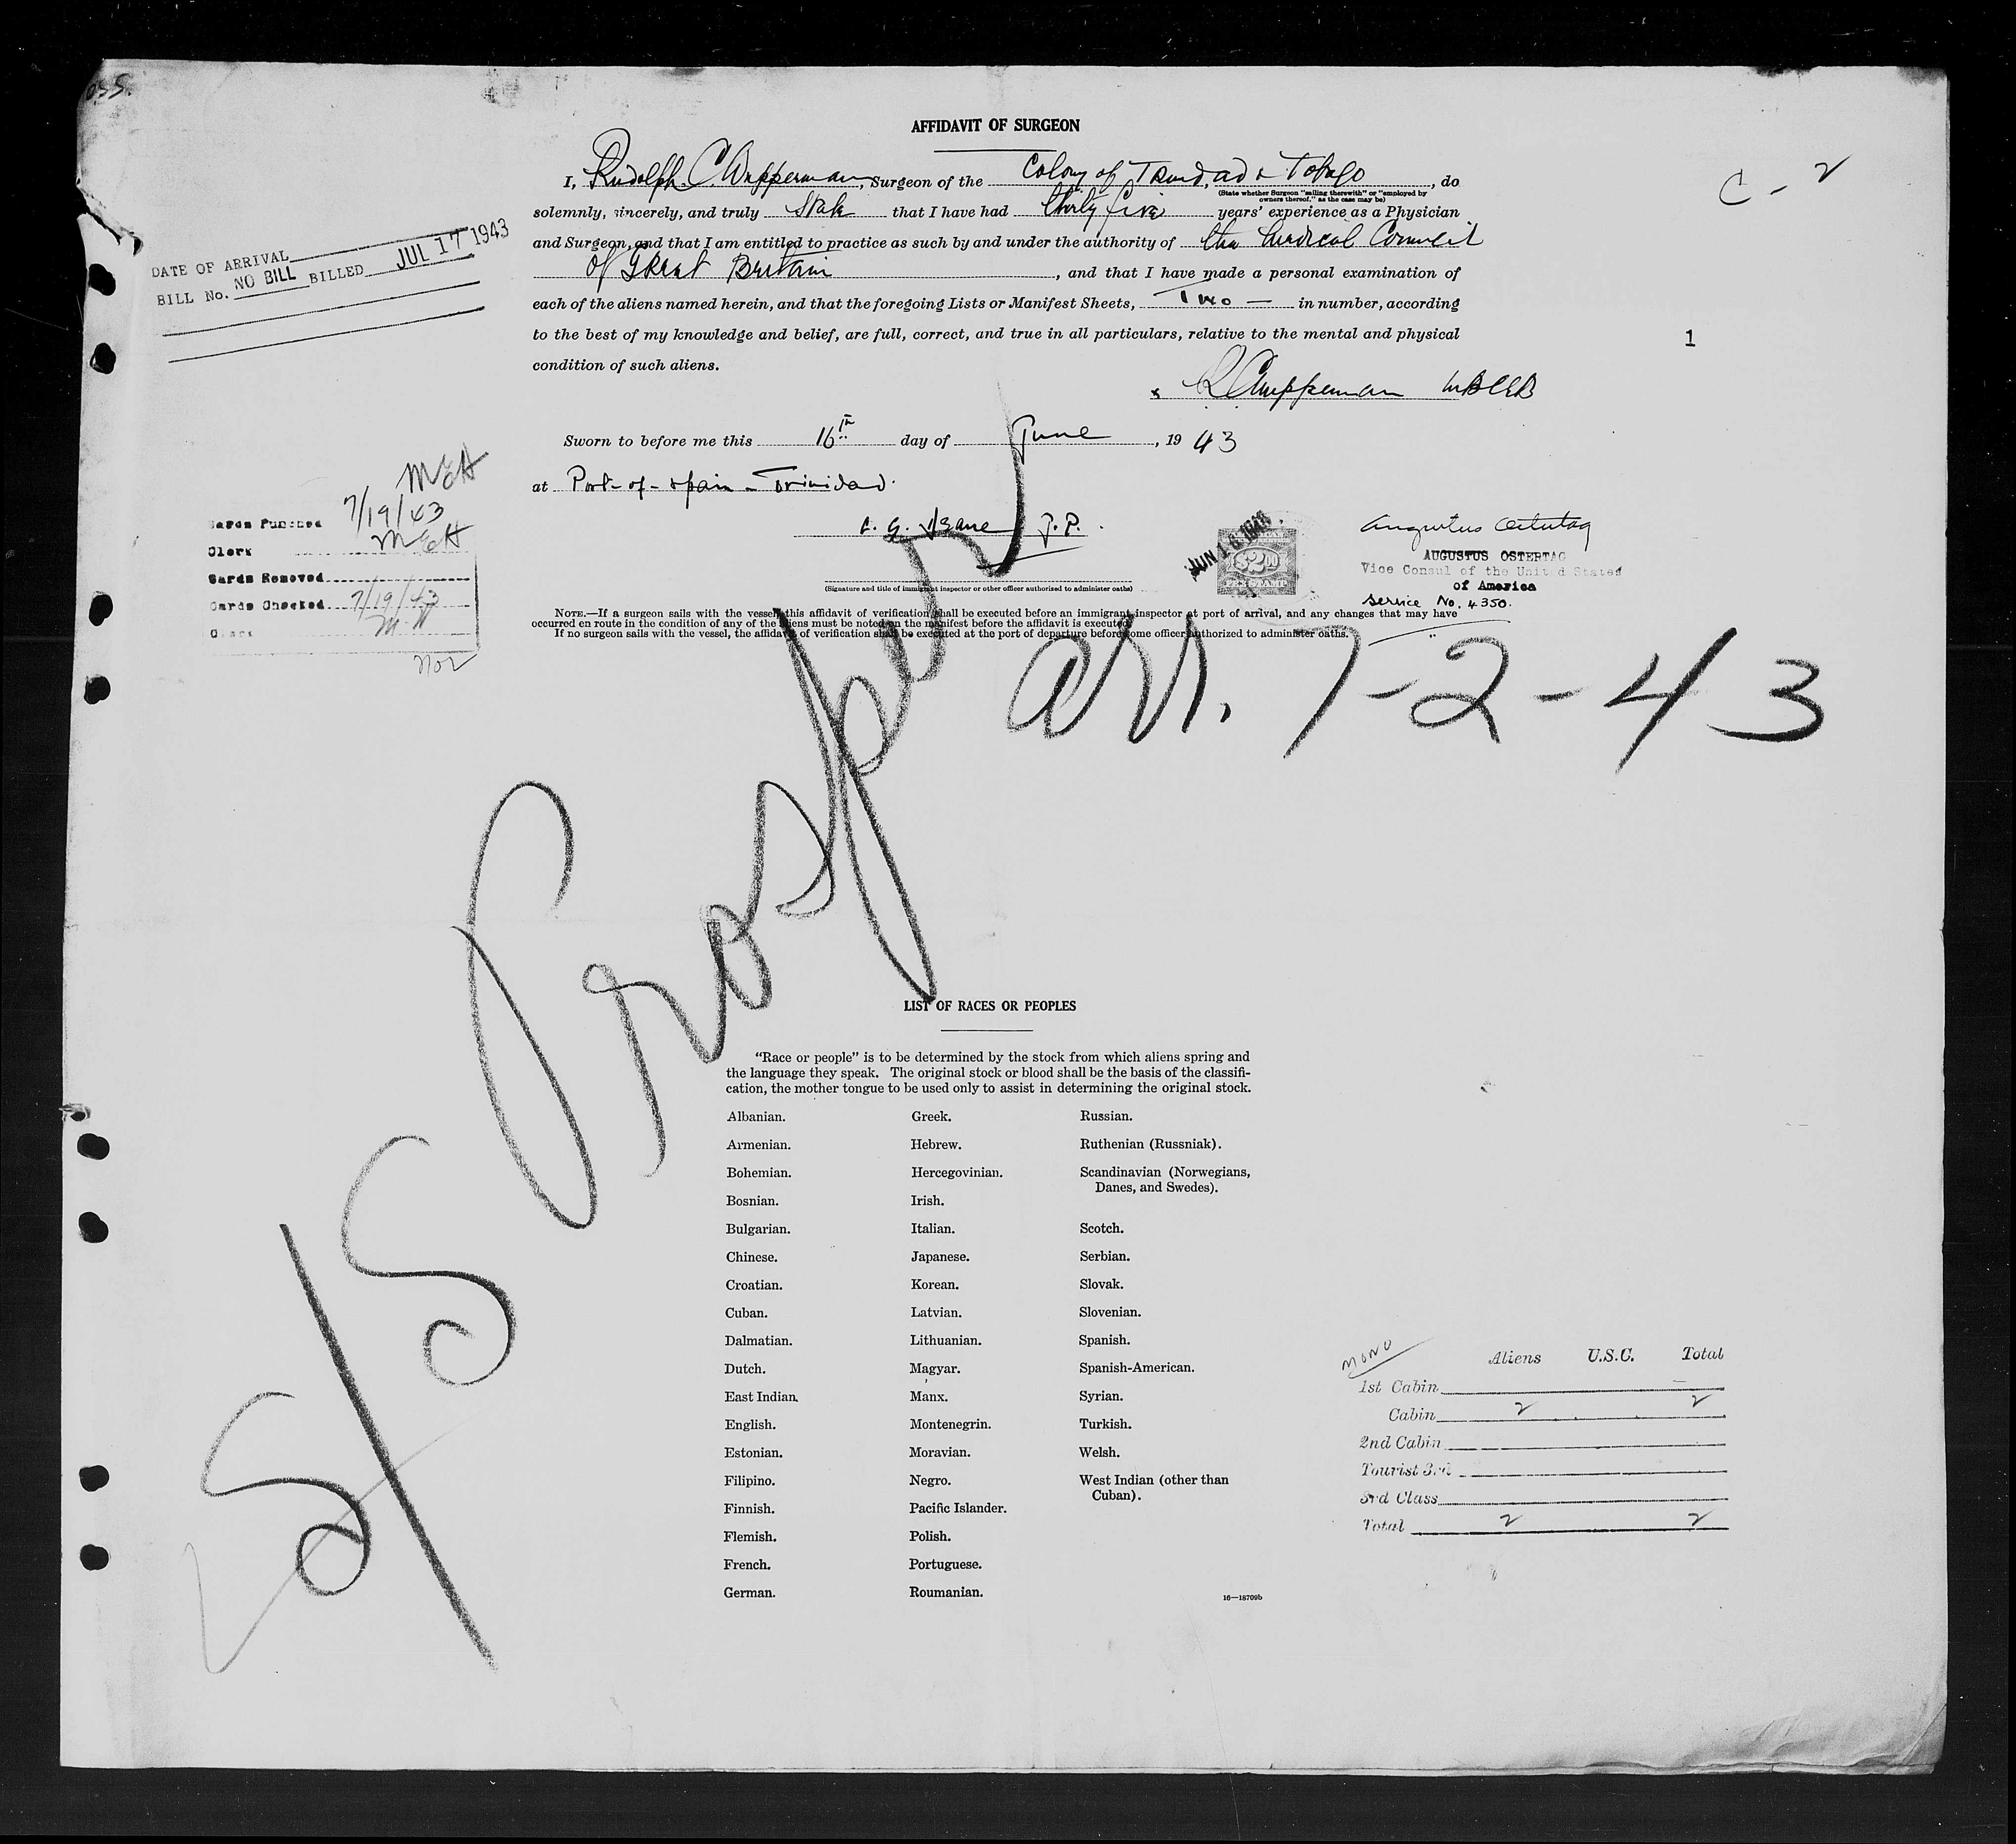 AFFIDAVIT OF SURGEON
I, Rudolph C. Wupperman, Surgeon of the Colony of Trinidad & Tobago, do
(State whether Surgeon "sailing therewith" or "employed by
owners thereof," as the case may be)
solemnly, sincerely, and truly State that I have had thirty five years' experience as a Physician
and Surgeon, and that I am entitled to practice as such by and under the authority of the Medical Council
of Great Britain, and that I have made a personal examination of
each of the aliens named herein, and that the foregoing Lists or Manifest Sheets, Two — in number, according
to the best of my knowledge and belief, are full, correct, and true in all particulars, relative to the mental and physical
condition of such aliens.
RCWupperman
Sworn to before me this 16th day of June, 1943
at Port-of-Spain - Trinidad.
J.P.
(Signature and title of immigrant inspector or other officer authorized to administer oaths)
NOTE.—If a surgeon sails with the vessel, this affidavit of verification shall be executed before an immigrant inspector at port of arrival, and any changes that may have
occurred en route in the condition of any of the aliens must be noted on the manifest before the affidavit is executed.
If no surgeon sails with the vessel, the affidavit of verification shall be executed at the port of departure before some officer authorized to administer oaths.
C - 2
1
DATE OF ARRIVAL
BILL No. NO BILL BILLED JUL 17 1943
MEH
Cards Punched 7/19/43
Clerk MEH
Cards Removed
Cards Checked 7/19/43
Clerk
Nor
JUN 16 1943
$2.00
FEE STAMP
Augustus Ostertag
AUGUSTUS OSTERTAG
Vice Consul of the United States
of America
Service No. 4350.
arr. 7-2-43
S/S Prosper
LIST OF RACES OR PEOPLES
"Race or people" is to be determined by the stock from which aliens spring and
the language they speak. The original stock or blood shall be the basis of the classifi-
cation, the mother tongue to be used only to assist in determining the original stock.
Albanian.
Armenian.
Bohemian.
Bosnian.
Bulgarian.
Chinese.
Croatian.
Cuban.
Dalmatian.
Dutch.
East Indian.
English.
Estonian.
Filipino.
Finnish.
Flemish.
French.
German.
Greek.
Hebrew.
Hercegovinian.
Irish.
Italian.
Japanese.
Korean.
Latvian.
Lithuanian.
Magyar.
Manx.
Montenegrin.
Moravian.
Negro.
Pacific Islander.
Polish.
Portuguese.
Roumanian.
Russian.
Ruthenian (Russniak).
Scandinavian (Norwegians,
Danes, and Swedes).
Scotch.
Serbian.
Slovak.
Slovenian.
Spanish.
Spanish-American.
Syrian.
Turkish.
Welsh.
West Indian (other than
Cuban).
16—18709b
MONO
Aliens U.S.C. Total
1st Cabin
Cabin 2 2
2nd Cabin
Tourist 3rd
3rd Class
Total 2 2